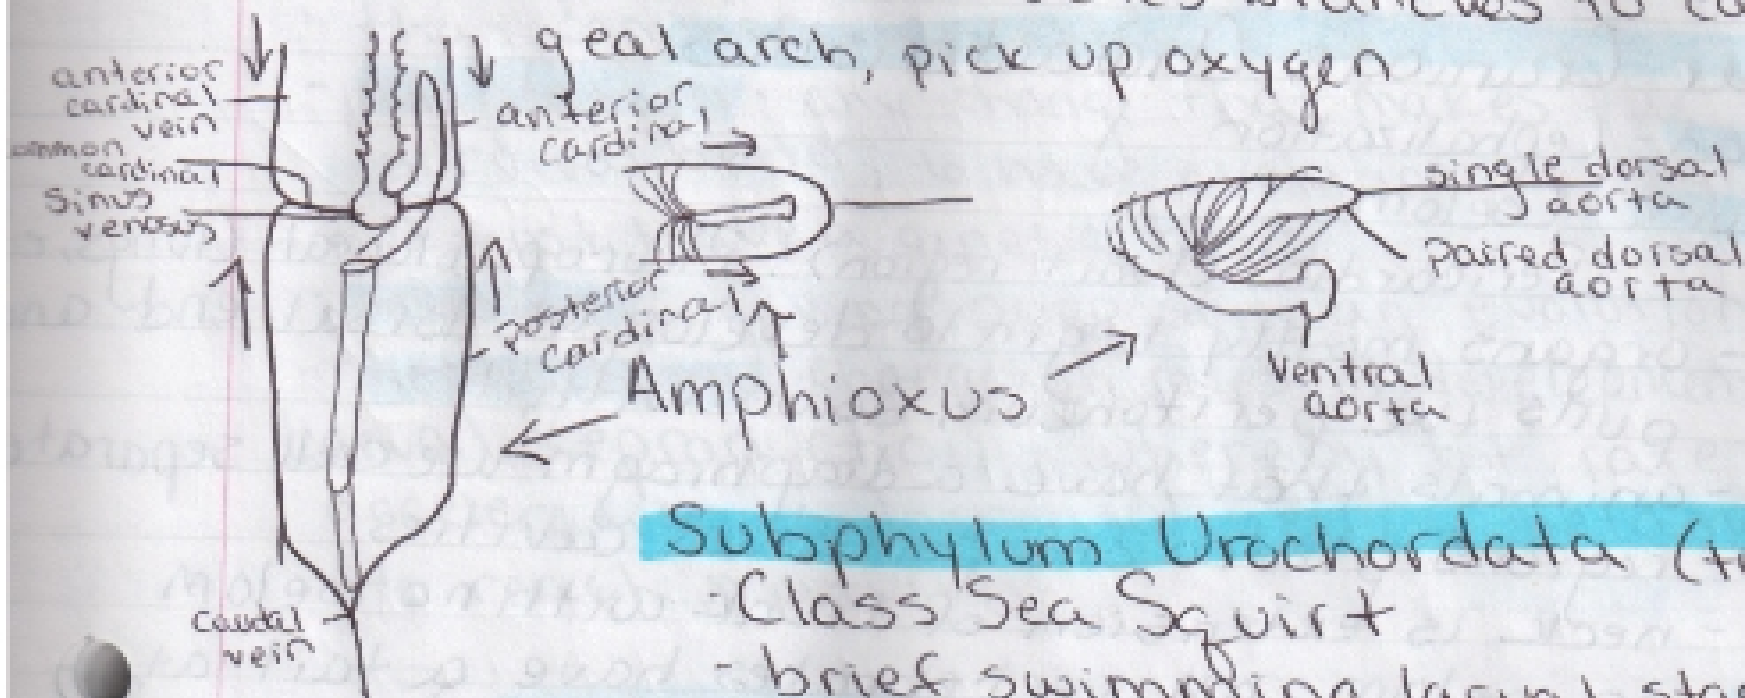 geal arch, pick up oxygen
anterior
cardinal
vein
ommon
cardinal
sinus
venosus
anterior
cardinal
posterior
cardinal
caudal
vein
single dorsal
aorta
paired dorsal
aorta
ventral
aorta
Amphioxus
Subphylum Urochordata
-Class Sea Squirt
- brief swimming larval